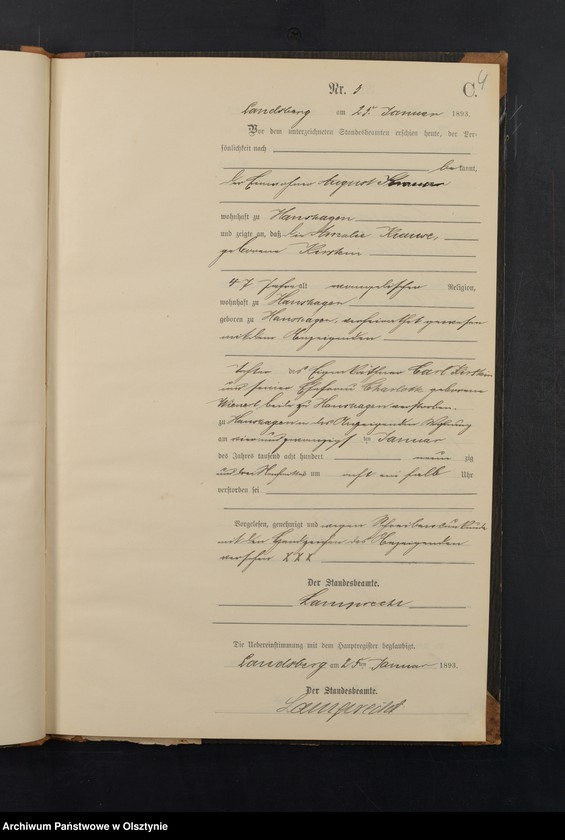 4
Nr. 3 C.
Landsberg am 25. Januar 1893.
Vor dem unterzeichneten Standesbeamten erschien heute, der Per-
sönlichkeit nach
bekannt,
der Einwohner August Krause
wohnhaft zu Hanshagen
und zeigte an, daß die Amalie Krause,
geborene Kirstein
47 Jahre alt evangelischer Religion,
wohnhaft zu Hanshagen
geboren zu Hanshagen, verheirathet gewesen
mit dem Anzeigenden
Tochter des Eigenkäthner Carl Kirstein
und seiner Ehefrau Charlotte geborene
beide zu Hanshagen verstorben.
zu Hanshagen in des Anzeigenden Wohnung
am vier und zwanzigsten Januar
des Jahres tausend acht hundert neunzig
und drei Nachmittags um acht ein halb Uhr
verstorben sei
Vorgelesen, genehmigt und wegen Schreibensunkunde
mit den Handzeichen des Anzeigenden
versehen XXX
Der Standesbeamte.
Lamprecht
Die Uebereinstimmung mit dem Hauptregister beglaubigt.
Landsberg am 25ten Januar 1893.
Der Standesbeamte.
Lamprecht
Archiwum Państwowe w Olsztynie